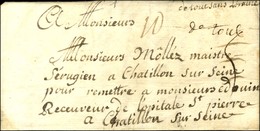 A Monsieurs
de toul
Monsieurs Môllez maistre
Serugien a Chatillon Sur Seine
pour remettre a monsieurs
Receuveur de lopitale St pierre
a Chatillon Sur Seine